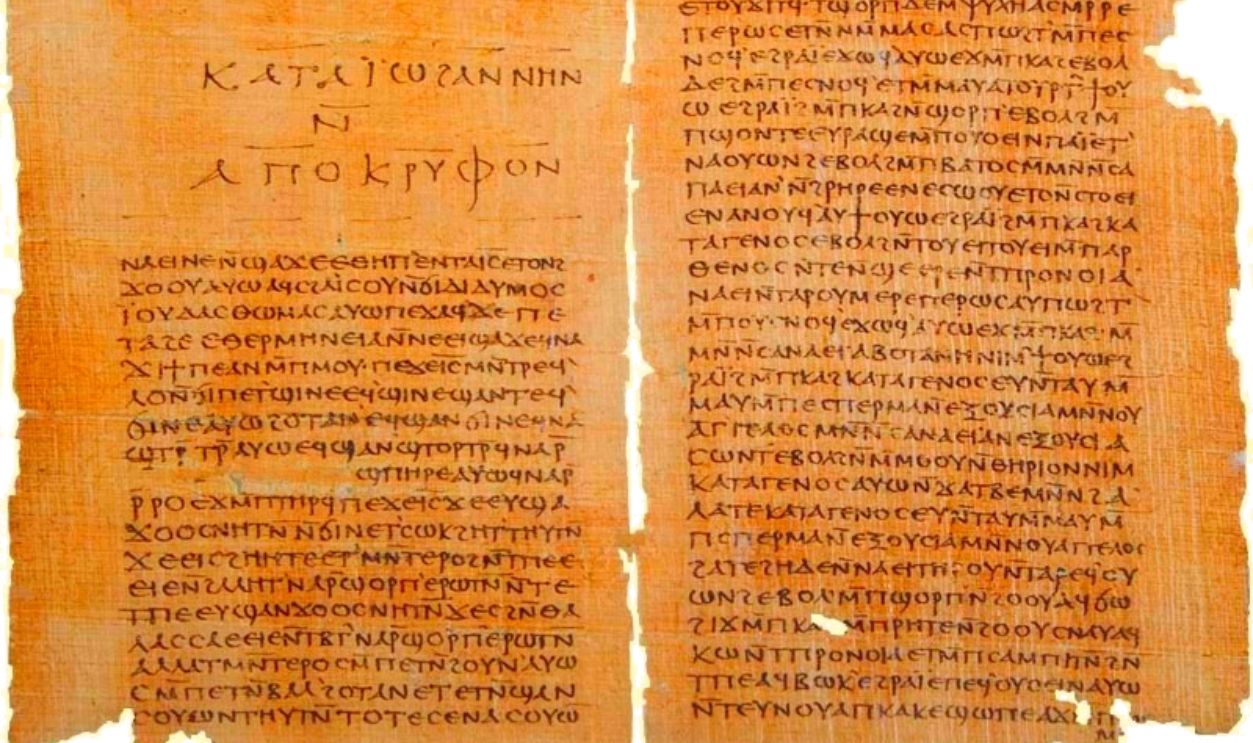 ⲕⲁⲧⲁ ⲓ̈ⲱϩⲁⲛⲛⲏⲛ
ⲛ̄
ⲁⲡⲟⲕⲣⲩⲫⲟⲛ
ⲛⲁⲉⲓⲛⲉⲛ̄ϣⲁϫⲉⲉⲑⲏⲡ̀ⲉⲛⲧⲁⲓ̅ⲥ̅ⲉⲧⲟⲛϩ
ϫⲟⲟⲩⲁⲩⲱⲁϥⲥϩⲁⲓ̈ⲥⲟⲩⲛ̄ϭⲓⲇⲓⲇⲩⲙⲟⲥ
ⲓ̈ⲟⲩⲇⲁⲥⲑⲱⲙⲁⲥⲁⲩⲱⲡⲉϫⲁϥϫⲉⲡⲉ
ⲧⲁϩⲉⲉⲑⲉⲣⲙⲏⲛⲉⲓⲁⲛ̄ⲛⲉⲉⲓϣⲁϫⲉϥⲛⲁ
ϫⲓϯⲡⲉⲁⲛⲙ̄ⲡⲙⲟⲩ·ⲡⲉϫⲉⲓ̅ⲥ̅ⲙⲛ̄ⲧⲣⲉϥ
ⲗⲟⲛ̄ϭⲓⲡⲉⲧϣⲓⲛⲉⲉϥϣⲓⲛⲉϣⲁⲛⲧⲉϥ
ϭⲓⲛⲉⲁⲩⲱϩⲟⲧⲁⲛⲉϥϣⲁⲛϭⲓⲛⲉϥⲛⲁ
ϣⲧⲣ̄ⲧⲣ̄ⲁⲩⲱⲉϥϣⲁⲛϣⲧⲟⲣⲧⲣ̄ϥⲛⲁⲣ̄
ϣⲡⲏⲣⲉⲁⲩⲱϥⲛⲁⲣ̄
ⲣ̄ⲣⲟⲉϫⲙ̄ⲡⲧⲏⲣϥⲡⲉϫⲉⲓ̅ⲥ̅ϫⲉⲉⲩϣⲁ
ϫⲟⲟⲥⲛⲏⲧⲛ̄ⲛ̄ϭⲓⲛⲉⲧ̀ⲥⲱⲕϩⲏⲧ̀ⲧⲏⲩⲧⲛ̄
ϫⲉⲉⲓⲥϩⲏⲏⲧⲉⲉⲧ̀ⲙⲛ̄ⲧⲉⲣⲟϩⲛ̄ⲧⲡⲉⲉ
ⲉⲓⲉⲛ̄ϩⲁⲗⲏⲧ̀ⲛⲁⲣ̄ϣⲟⲣⲡ̀ⲉⲣⲱⲧⲛ̄ⲛ̄ⲧⲉ
ⲧⲡⲉⲉⲩϣⲁⲛϫⲟⲟⲥⲛⲏⲧⲛ̄ϫⲉⲥϩⲛ̄ⲑⲁ
ⲗⲁⲥⲥⲁⲉⲉⲓⲉⲛ̄ⲧⲃⲧ̀ⲛⲁⲣ̄ϣⲟⲣⲡ̀ⲉⲣⲱⲧⲛ̄
ⲁⲗⲗⲁⲧⲙⲛ̄ⲧⲉⲣⲟⲥⲙ̄ⲡⲉⲧⲛ̄ϩⲟⲩⲛ̀ⲁⲩⲱ
ⲥⲙ̄ⲡⲉⲧⲛ̄ⲃⲁⲗ̀ϩⲟⲧⲁⲛⲉⲧⲉⲧⲛ̄ϣⲁⲛ
ⲥⲟⲩⲱⲛⲧⲏⲩⲧⲛ̄ⲧⲟⲧⲉⲥⲉⲛⲁⲥⲟⲩⲱ
ⲉⲧⲟⲩϫⲡϥ·ⲧϣⲟⲣⲡⲇⲉⲙ̄ⲯⲩⲭⲏⲁⲥⲙⲣ̄ⲣⲉ
ⲡⲉⲣⲱⲥⲉⲧⲛ̄ⲛⲙ̄ⲙⲁⲥⲁⲥⲡⲱϩⲧ̀ⲙ̄ⲡⲉⲥ
ⲛⲟϥ̀ⲉϩⲣⲁⲓ̈ⲉϫⲱϥ̀ⲁⲩⲱⲉϫⲙ̄ⲡⲕⲁϩⲉⲃⲟⲗ
ⲇⲉϩⲙ̄ⲡⲉⲥⲛⲟϥ̀ⲉⲧⲙ̄ⲙⲁⲩⲁⲡⲟⲩⲣⲧ̀ϯⲟⲩ
ⲱⲉϩⲣⲁⲓ̈ϩⲙ̄ⲡⲕⲁϩⲛ̄ϣⲟⲣⲡ̀ⲉⲃⲟⲗϩⲙ̄
ⲡϣⲟⲛⲧⲉⲉⲩⲣⲁϣⲉⲙ̄ⲡⲟⲩⲟⲉⲓⲛⲡⲁⲓ̈ⲉⲧ̀
ⲛⲁⲟⲩⲱⲛϩⲉⲃⲟⲗϩⲙ̄ⲡⲃⲁⲧⲟⲥⲙ̄ⲙⲛ̄ⲛ̄ⲥⲁ
ⲡⲁⲉⲓⲁⲛ̀ϩⲣⲏⲣⲉⲉⲛⲉⲥⲱⲟⲩⲉⲧⲟⲛ̄ⲥⲧⲟⲉⲓ
ⲉⲛⲁⲛⲟⲩϥ̀ⲁⲩϯⲟⲩⲱⲉϩⲣⲁⲓ̈ϩⲙ̄ⲡⲕⲁϩⲕⲁ
ⲧⲁⲅⲉⲛⲟⲥⲉⲃⲟⲗϩⲛ̄ⲧⲟⲩⲉⲓⲧⲟⲩⲉⲓⲙ̄ⲡⲁⲣ
ⲑⲉⲛⲟⲥⲛ̄ⲧⲉⲛ̄ϣⲉⲉⲣⲉⲛ̄ⲧⲡⲣⲟⲛⲟⲓⲁ
ⲛⲁⲉⲓⲛ̄ⲧⲁⲣⲟⲩⲙⲉⲣⲉⲡⲉⲣⲱⲥⲁⲩⲡⲱϩⲧ̀
ⲙ̄ⲡⲟⲩⲥⲛⲟϥ̀ⲉϫⲱϥ̀ⲁⲩⲱⲉϫⲙ̄ⲡⲕⲁϩ·ⲙ̄
ⲙⲛ̄ⲛ̄ⲥⲁⲛⲁⲉⲓⲁⲃⲟⲧⲁⲛⲏⲛⲓⲙ̀ϯⲟⲩⲱⲉϩ
ⲣⲁⲓ̈ϩⲙ̄ⲡⲕⲁϩⲕⲁⲧⲁⲅⲉⲛⲟⲥⲉⲩⲛ̄ⲧⲁⲩⲙ̄
ⲙⲁⲩⲙ̄ⲡⲉⲥⲡⲉⲣⲙⲁⲛ̄ⲉⲝⲟⲩⲥⲓⲁⲙⲛ̄ⲛⲟⲩ
ⲁⲅⲅⲉⲗⲟⲥⲙⲛ̄ⲛ̄ⲥⲁⲛⲁⲉⲓⲁⲛⲉⲝⲟⲩⲥⲓⲁ
ⲥⲱⲛⲧⲉⲃⲟⲗϩⲛ̄ⲙ̄ⲙⲟⲟⲩⲛ̄ⲑⲏⲣⲓⲟⲛⲛⲓⲙ
ⲕⲁⲧⲁⲅⲉⲛⲟⲥⲁⲩⲱⲛ̄ϫⲁⲧⲃⲉⲙⲛ̄ⲛ̄ϩⲁ
ⲗⲁⲧⲉⲕⲁⲧⲁⲅⲉⲛⲟⲥⲉⲩⲛ̄ⲧⲁⲩⲙ̄ⲙⲁⲩⲙ̄
ⲡⲥⲡⲉⲣⲙⲁⲛ̄ⲉⲝⲟⲩⲥⲓⲁⲙⲛ̄ⲛⲟⲩⲁⲅⲅⲉⲗⲟⲥ
ϩⲁⲧⲉϩⲏⲇⲉⲛ̄ⲛⲁⲉⲓⲧⲏⲣⲟⲩⲛ̄ⲧⲁⲣⲉϥⲟⲩ
ⲱⲛϩⲉⲃⲟⲗϩⲙ̄ⲡϣⲟⲣⲡ̀ⲛ̄ϩⲟⲟⲩⲁϥϭⲱ
ϩⲓϫⲙ̄ⲡⲕⲁϩⲙ̄ⲡⲣⲏⲧⲉⲛ̄ϩⲟⲟⲩⲥⲛⲁⲩⲁϥ
ⲕⲱⲛ̄ⲧⲡⲣⲟⲛⲟⲓⲁⲉⲧⲙ̄ⲡⲥⲁⲙⲡⲓⲧⲛ̄ϩⲛ̄
ⲧⲡⲉⲁϥⲃⲱⲕ̀ⲉϩⲣⲁⲓ̈ⲉⲡⲉϥⲟⲩⲟⲉⲓⲛⲁⲩⲱ
ⲛ̄ⲧⲉⲩⲛⲟⲩⲁⲡⲕⲁⲕⲉϣⲱⲡⲉ